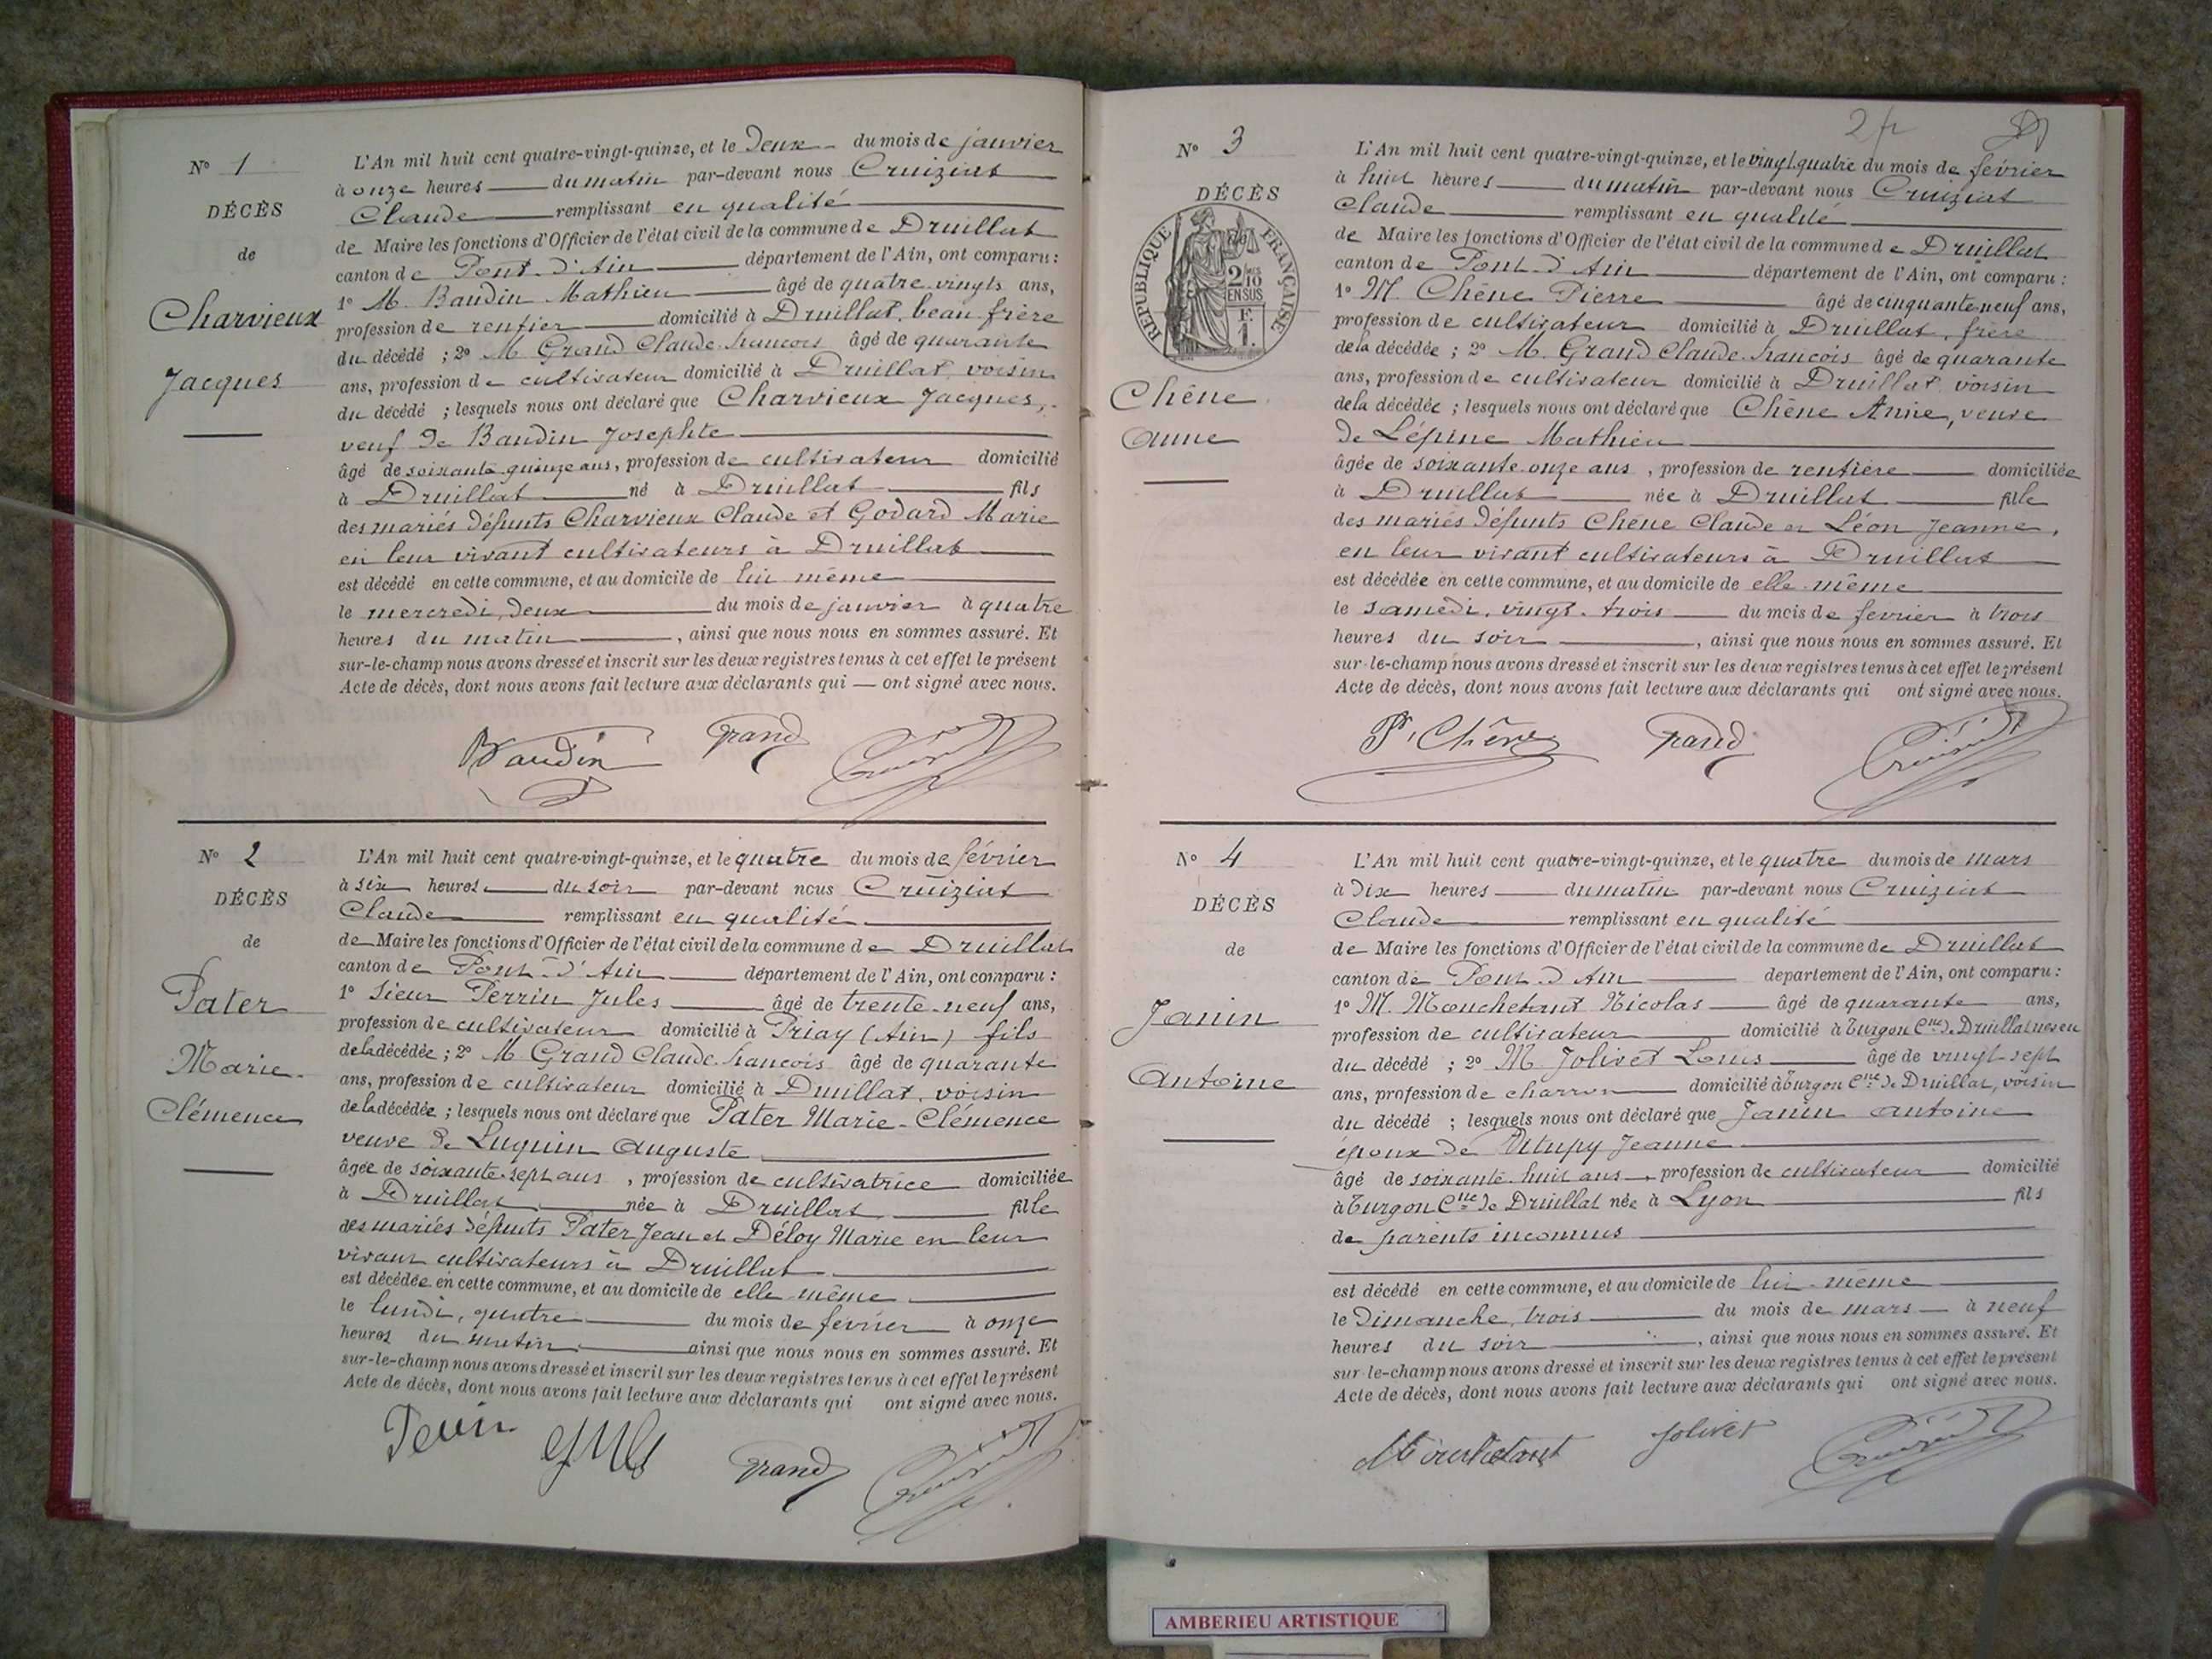 N° 1
DÉCÈS
de
Charvieux
Jacques
L'An mil huit cent quatre-vingt-quinze, et le Deux du mois de janvier
à onze heures du matin par-devant nous Cruiziat
Claude remplissant en qualité
de Maire les fonctions d'Officier de l'état civil de la commune de Druillat
canton de Pont-d'Ain département de l'Ain, ont comparu :
1° M. Baudin Mathieu âgé de quatre-vingts ans,
profession de rentier domicilié à Druillat, beau-frère
du décédé ; 2° M Grand Claude-françois âgé de quarante
ans, profession de cultivateur domicilié à Druillat, voisin
du décédé ; lesquels nous ont déclaré que Charvieux Jacques,
veuf de Baudin Josephte
âgé de soixante-quinze ans, profession de cultivateur domicilié
à Druillat né à Druillat fils
des mariés défunts Charvieux Claude et Godard Marie
en leur vivant cultivateurs à Druillat
est décédé en cette commune, et au domicile de lui-même
le mercredi, deux du mois de janvier à quatre
heures du matin, ainsi que nous nous en sommes assuré. Et
sur-le-champ nous avons dressé et inscrit sur les deux registres tenus à cet effet le présent
Acte de décès, dont nous avons fait lecture aux déclarants qui — ont signé avec nous.
Baudin Grand Cruiziat
N° 2
DÉCÈS
de
Pater
Marie-
Clémence
L'An mil huit cent quatre-vingt-quinze, et le quatre du mois de février
à six heures du soir par-devant nous Cruiziat
Claude remplissant en qualité
de Maire les fonctions d'Officier de l'état civil de la commune de Druillat
canton de Pont-d'Ain département de l'Ain, ont comparu :
1° Sieur Perrin Jules âgé de trente-neuf ans,
profession de cultivateur domicilié à Priay (Ain) fils
de la décédée ; 2° M Grand Claude-françois âgé de quarante
ans, profession de cultivateur domicilié à Druillat, voisin
de la décédée ; lesquels nous ont déclaré que Pater Marie-Clémence
veuve de Luquin Auguste
âgée de soixante-sept ans, profession de cultivatrice domiciliée
à Druillat née à Druillat fille
des mariés défunts Pater Jean et Déloy Marie en leur
vivant cultivateurs à Druillat
est décédée en cette commune, et au domicile de elle-même
le lundi, quatre du mois de février à onze
heures du matin ainsi que nous nous en sommes assuré. Et
sur-le-champ nous avons dressé et inscrit sur les deux registres tenus à cet effet le présent
Acte de décès, dont nous avons fait lecture aux déclarants qui ont signé avec nous.
Grand Cruiziat
N° 3
DÉCÈS
RÉPUBLIQUE FRANÇAISE
2/10
EN SUS
F.
1.
Chêne
Anne
L'An mil huit cent quatre-vingt-quinze, et le vingt-quatre du mois de février
à huit heures du matin par-devant nous Cruiziat
Claude remplissant en qualité
de Maire les fonctions d'Officier de l'état civil de la commune de Druillat
canton de Pont-d'Ain département de l'Ain, ont comparu :
1° M. Chêne Pierre âgé de cinquante-neuf ans,
profession de cultivateur domicilié à Druillat, frère
de la décédée ; 2° M. Grand Claude-françois âgé de quarante
ans, profession de cultivateur domicilié à Druillat voisin
de la décédée ; lesquels nous ont déclaré que Chêne Anne, veuve
de Lépine Mathieu
âgée de soixante-onze ans, profession de rentière domiciliée
à Druillat née à Druillat fille
des mariés défunts Chêne Claude et Léon Jeanne,
en leur vivant cultivateurs à Druillat
est décédée en cette commune, et au domicile de elle-même
le samedi, vingt-trois du mois de fevrier à trois
heures du soir, ainsi que nous nous en sommes assuré. Et
sur-le-champ nous avons dressé et inscrit sur les deux registres tenus à cet effet le présent
Acte de décès, dont nous avons fait lecture aux déclarants qui ont signé avec nous.
P. Chêne Grand Cruiziat
N° 4
DÉCÈS
de
Janin
Antoine
L'An mil huit cent quatre-vingt-quinze, et le quatre du mois de mars
à dix heures du matin par-devant nous Cruiziat
Claude remplissant en qualité
de Maire les fonctions d'Officier de l'état civil de la commune de Druillat
canton de Pont-d'Ain departement de l'Ain, ont comparu :
1° M. Mouchetant Nicolas âgé de quarante ans,
profession de cultivateur domicilié à Turgon Cne de Druillat neveu
du décédé ; 2° M Jolivet Louis âgé de vingt-sept
ans, profession de charron domicilié à Turgon Cne de Druillat, voisin
du décédé ; lesquels nous ont déclaré que Janin Antoine
époux de Jeanne
âgé de soixante-huit ans, profession de cultivateur domicilié
à Turgon Cne de Druillat née à Lyon fils
de parents inconnus
est décédé en cette commune, et au domicile de lui-même
le Dimanche, trois du mois de mars à neuf
heures du soir, ainsi que nous nous en sommes assuré. Et
sur-le-champ nous avons dressé et inscrit sur les deux registres tenus à cet effet le présent
Acte de décès, dont nous avons fait lecture aux déclarants qui ont signé avec nous.
Mouchetant Jolivet Cruiziat
AMBERIEU ARTISTIQUE